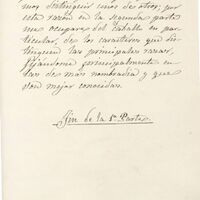 mos distinguir unos de otros; por
esta razón en la segunda parte
me ocuparé del Caballo en par-
ticular, de los caracteres que dis-
tinguen las principales razas,
fijándome principalmente en
las de mas nombradía y que
son mejor conocidas.
Fin de la 1ª Parte.